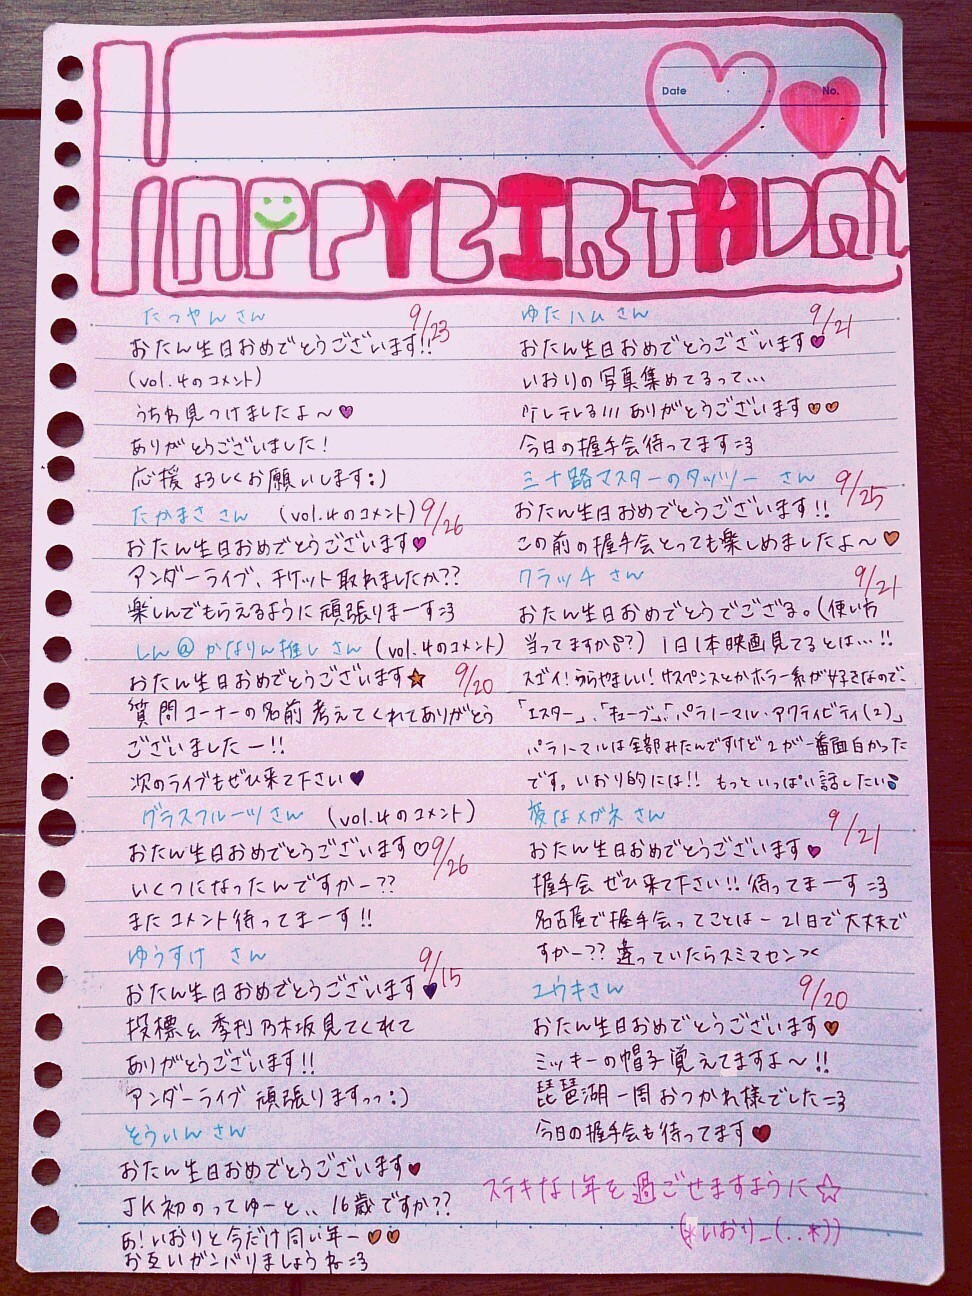 Date
No.
HAPPY BIRTHDAY
たつやんさん 9/23
おたん生日おめでとうございます!!
(vol.4のコメント)
うちわ見つけましたよ〜♥
ありがとうございました!
応援よろしくお願いします:)
たかまささん (vol.4のコメント) 9/26
おたん生日おめでとうございます♥
アンダーライブ、チケット取れましたか??
楽しんでもらえるように頑張りまーす=3
しん@かなりん推しさん (vol.4のコメント)
おたん生日おめでとうございます★ 9/20
質問コーナーの名前考えてくれてありがとう
ございましたー!!
次のライブもぜひ来て下さい♥
グラスフルーツさん (vol.4のコメント)
おたん生日おめでとうございます♡ 9/26
いくつになったんですかー??
またコメント待ってまーす!!
ゆうすけさん 9/15
おたん生日おめでとうございます♥
投標& 季刊乃木坂見てくれて
ありがとうございます!!
アンダーライブ頑張りますっっ:)
とういんさん
おたん生日おめでとうございます♥
JK初のってゆーと、、16歳ですか??
あ!いおりと今だけ同い年ー♡♡
お互いガンバりましょうね=3
ゆたハムさん 9/21
おたん生日おめでとうございます♥
いおりの写真集めてるって…
テレテレ!!! ありがとうございます♡♡
今日の握手会待ってます=3
三十路マスターのタッツーさん 9/25
おたん生日おめでとうございます!!
この前の握手会とっても楽しめましたよ〜♡
クラッチさん 9/21
おたん生日おめでとうでござる。(使い方
当ってますか??) 1日1本映画見てるとは…!!
スゴイ!うらやましい!サスペンスとかホラー系が好きなので、
「エスター」、「キューブ」、「パラノーマル・アクティビティ(2)」
パラノーマルは全部みたんですけど2が一番面白かった
です。いおり的には!! もっといっぱい話したい
なメガネさん 9/21
おたん生日おめでとうございます♥
握手会ぜひ来て下さい!! 待ってまーす=3
名古屋で握手会ってことはー21日で大丈夫で
すかー?? 違っていたらスミマセン><
ユウキさん 9/20
おたん生日おめでとうございます♥
ミッキーの帽子覚えてますよ〜!!
琵琶湖一周おつかれ様でした=3
今日の握手会も待ってます♥
ステキな1年を過ごせますように☆
(*いおり_(..*))